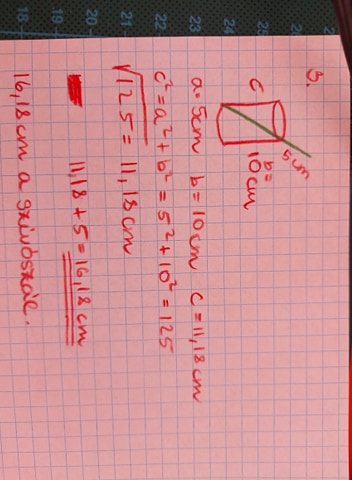 3.
5cm
c
b=
10cm
a=5cm b=10cm c=11,18cm
c²=a²+b²=5²+10²=125
√125=11,18cm
11,18+5=16,18cm
16,18cm a szívószál.
18 19 20 21 22 23 24 25